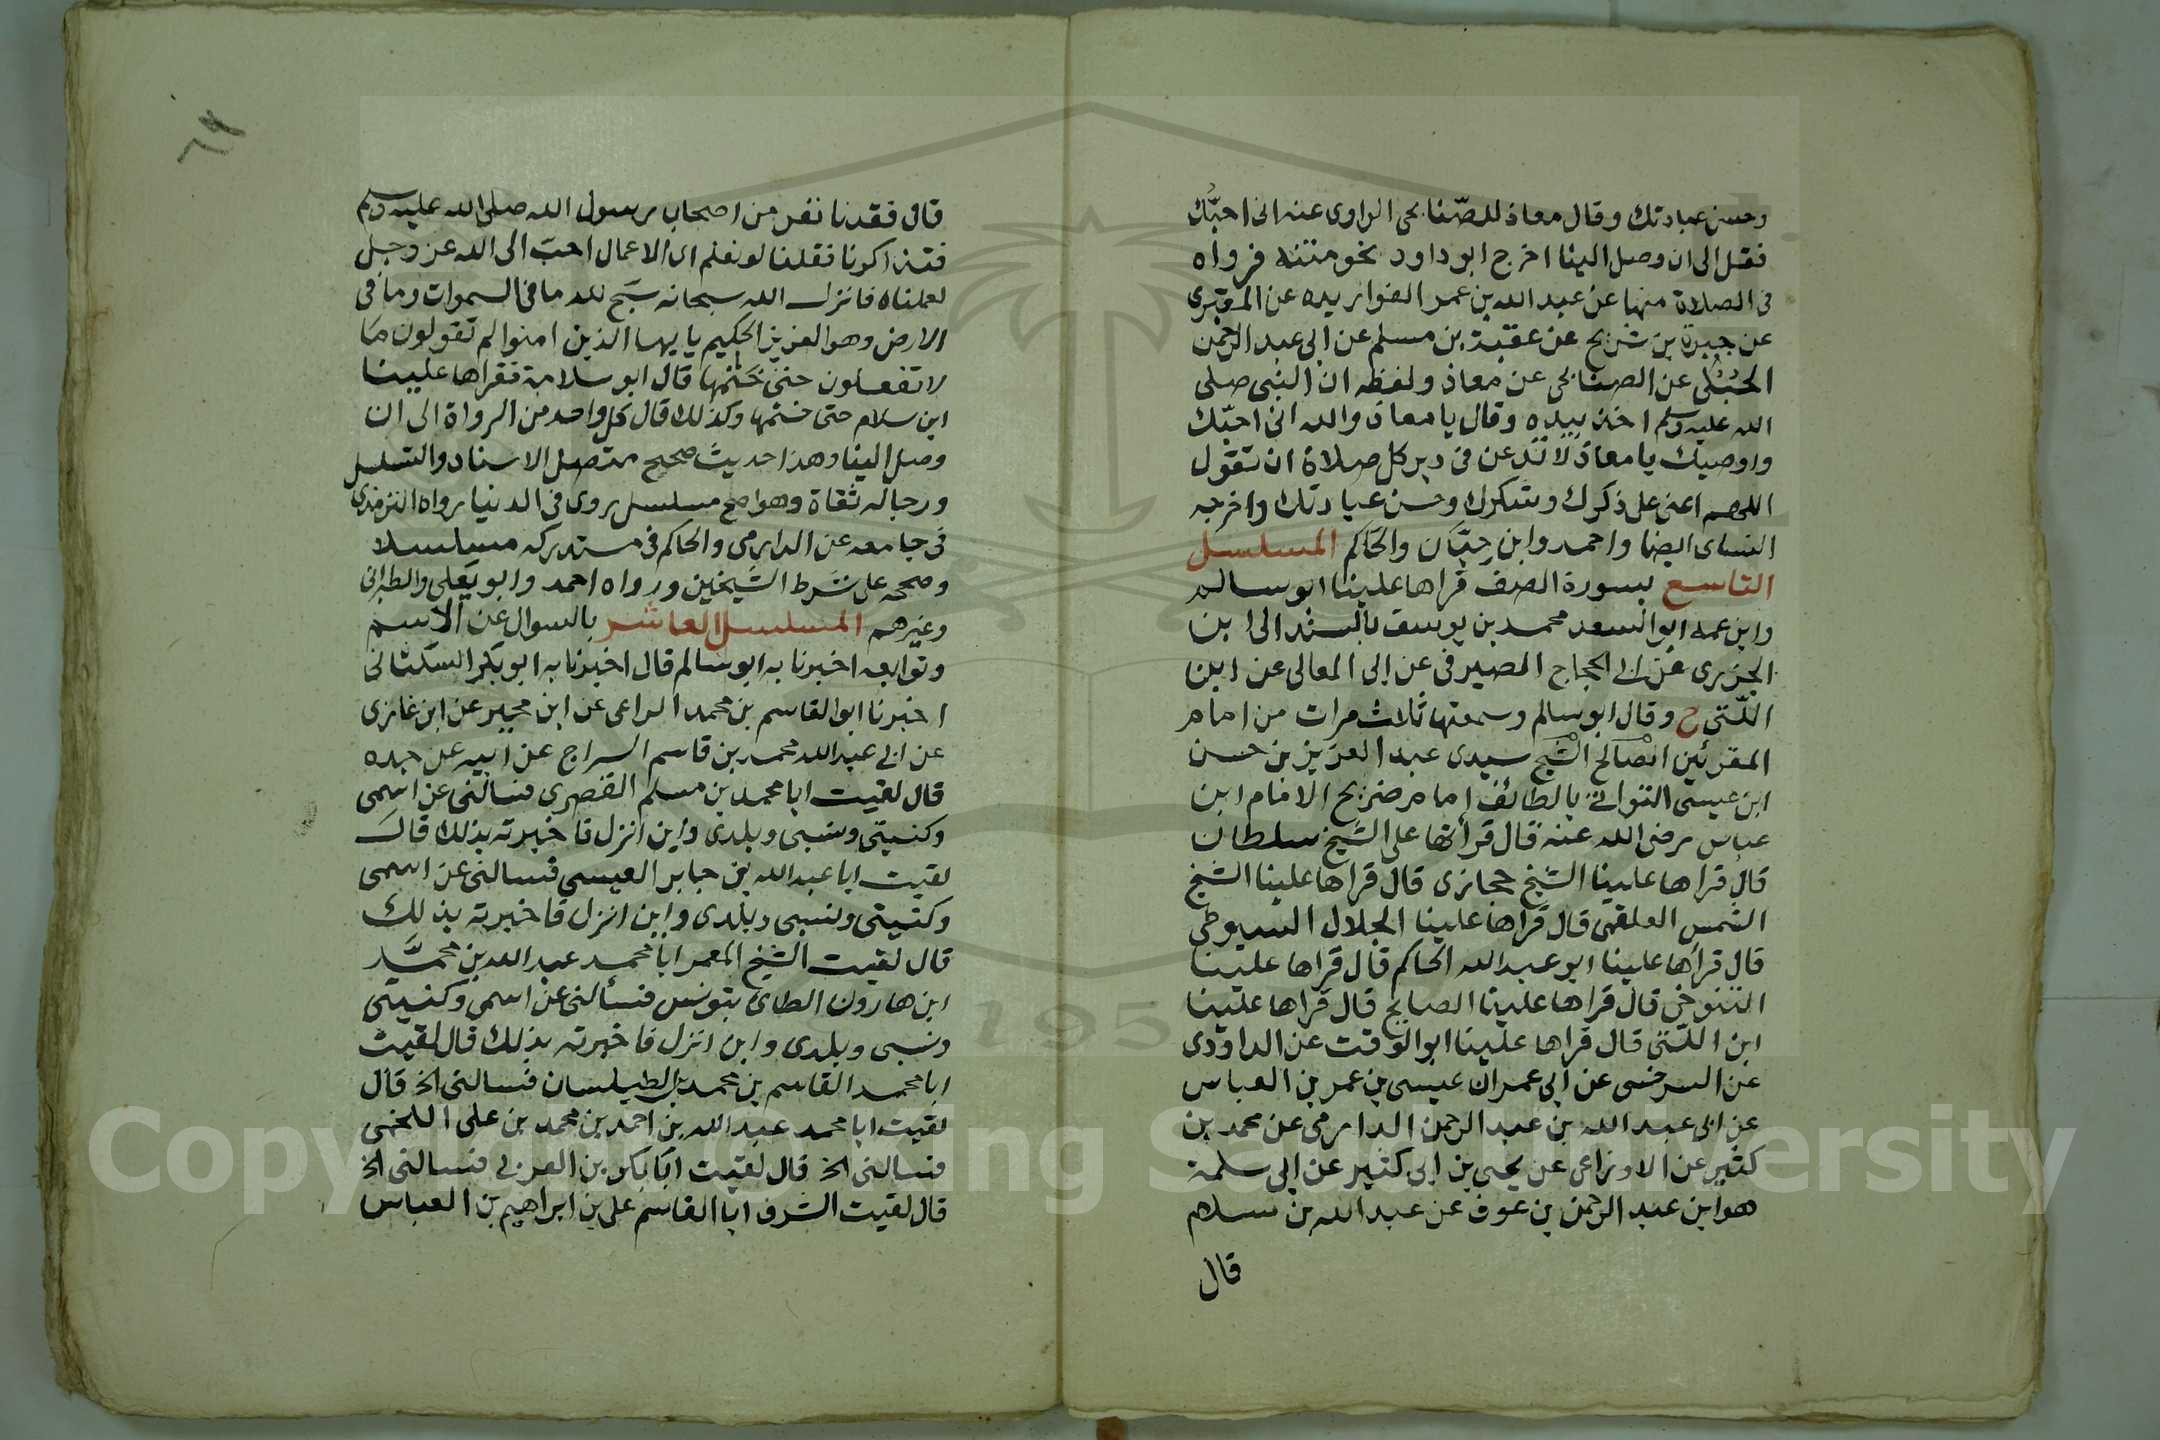 وحسن عبادتك وقال معاذ للصنابحي الراوي عنه اني احبُّك
فقل الى ان وصل الينا اخرج ابو داود نحو متنه فرواه
في الصلاة منها عن عبد الله بن عمر القواريره عن المقبري
عن حيوة بن شريح عن عقبة بن مسلم عن ابي عبد الرحمن
الحُبُلي عن الصنابحي عن معاذ ولفظه ان النبي صلى
الله عليه وسلم اخذ بيده وقال يا معاذ والله اني احبّك
واوصيك يا معاذ لا تدعن في دبر كل صلاة ان تقول
اللهم اعني على ذكرك وشكرك وحسن عبادتك واخرجه
النساي ايضا واحمد وابن حِبَّان والحاكم المسلسل
التاسع بسورة الصف قراها علينا ابو سالم
وابن عمه ابو السعد محمد بن يوسف بالسند الى ابن
الجزري عن ابي الحجاج المصيرفي عن ابي المعالي عن ابن
اللّتي ح وقال ابو سالم وسمعتها ثلاث مرات من امام
المقرئين الصالح الشيخ سيدي عبد العزيز بن حسن
ابن عيسى التواتي بالطائف امام ضريح الامام ابن
عباس رضى الله عنه قال قرأتها على الشيخ سلطان
قال قراها علينا الشيخ حجازي قال قراها علينا الشيخ
الشمس العلقمي قال قراها علينا الجلال السيوطي
قال قراها علينا ابو عبد الله الحاكم قال قراها علينا
التنوخي قال قراها علينا الصابح قال قراها علينا
ابن اللتي قال قراها علينا ابو الوقت عن الداودي
عن السرخسى عن ابي عمران عيسى بن عمر بن العباس
عن ابي عبد الله بن عبد الرحمن الدارمي عن محمد بن
كثير عن الاوزاعي عن يحيى بن ابي كثير عن ابي سلمة
هو ابن عبد الرحمن بن عوف عن عبد الله بن سلام
قال
٦٩
قال فقدنا نفر من اصحاب رسول الله صلى الله عليه وسلم
فتذاكرنا فقلنا لو نعلم اى الاعمال احبّ الى الله عز وجل
لعملناه فانزل الله سبحانه سبح لله ما في السموات وما في
الارض وهو العزيز الحكيم يا يها الذين امنوا لم تقولون ما
لا تفعلون حتى ختمها قال ابو سلامة فقراها علينا
ابن سلام حتى ختمها وكذلك قال كل واحد من الرواة الى ان
وصل الينا وهذا حديث صحيح متصل الاسناد والتسلسل
ورجاله ثقاة وهو اصح مسلسل يروى في الدنيا رواه الترمذي
في جامعه عن الدارمي والحاكم في مستدركه مسلسلا
وصححه على شرط الشيخين ورواه احمد وابو يعلى والطبراني
وغيرهم المسلسل العاشر بالسوال عن الاسم
وتوابعه اخبرنا به ابو سالم قال اخبرنا به ابو بكر السكتاني
اخبرنا ابو القاسم بن محمد الراعي عن ابن مجبر عن ابن غازي
عن ابي عبد الله محمد بن قاسم السراج عن ابيه عن جده
قال لقيت ابا محمد بن مسلم القصري فسالني عن اسمى
وكنيتي ونسبى وبلدى واين انزل فاخبرته بذلك قال
لقيت ابا عبد الله بن جابر العيسى فسالني عن اسمى
وكنيتي ونسبى وبلدى واين انزل فاخبرته بذلك
قال لقيت الشيخ المعمر ابا محمد عبد الله بن محمَّد
ابن هارون الطاى بتونس فسألني عن اسمى وكنيتي
ونسبى وبلدى واين انزل فاخبرته بذلك قال لقيت
ابا محمد القاسم بن محمد بن الطيلسان فسالني الخ قال
لقيت ابا محمد عبد الله بن احمد بن محمد بن على اللخمي
فسالني الخ قال لقيت ابا بكر بن العربي فسالني الخ
قال لقيت الشرف ابا القاسم على بن ابراهيم بن العباس
Copyright © King Saud University
195